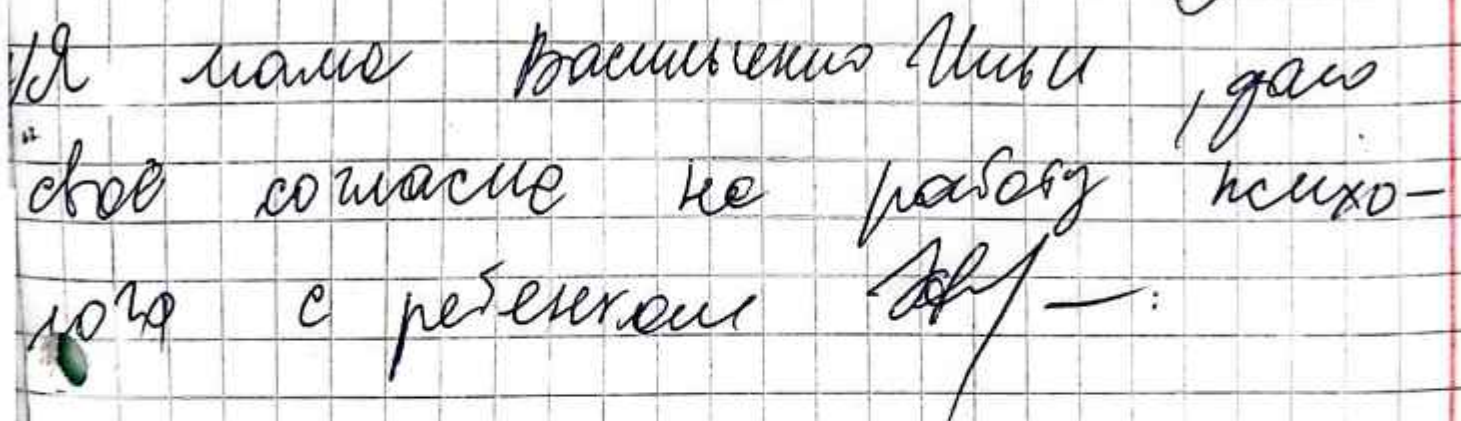 Я мама Васильченко Ильи, даю
своё согласие на работу психо-
лога с ребенком